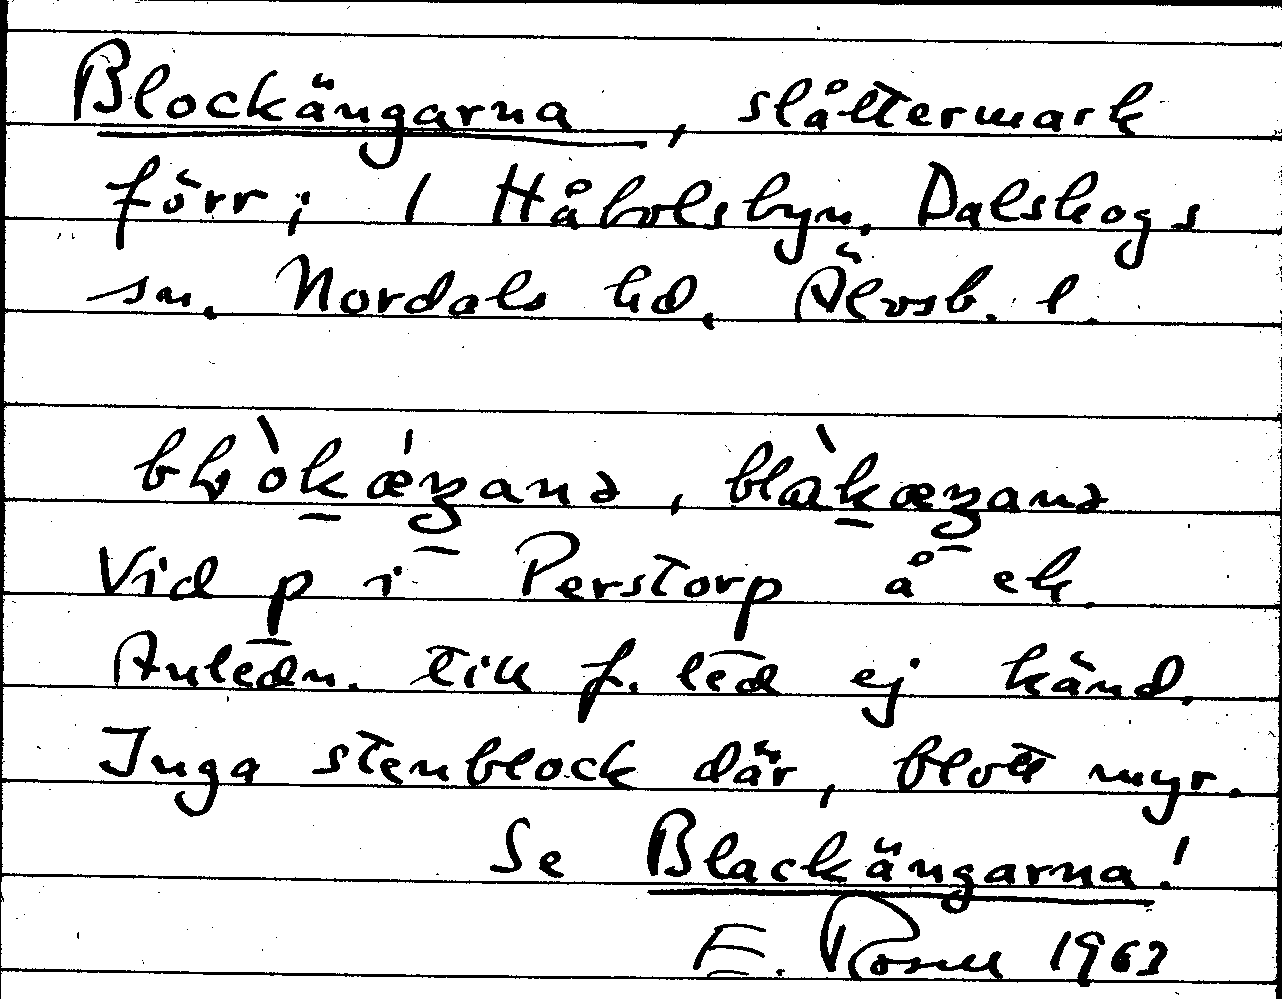 Blockängarna, slåttermark
förr; i Håbolsbyn. Dalskogs
sn. Nordals hd. Älvsb. l.
Vid p i Perstorp å ek.
Anledn. till f. led ej känd.
Inga stenblock där, blott myr.
Se Blackängarna!
E. Rosell 1963